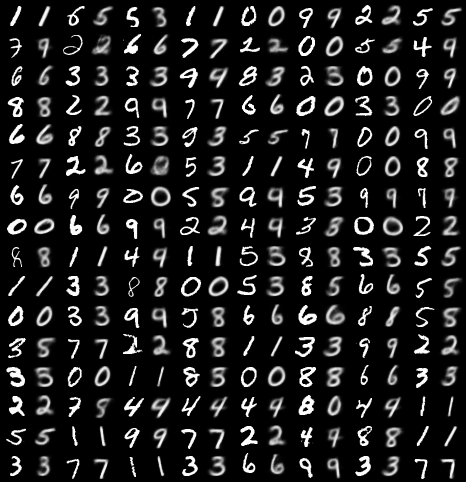 1 1 6 5 5 3 1 1 0 0 9 9 2 2 5 5
7 9 2 2 6 6 7 7 2 2 0 0 5 5 4 9
6 6 3 3 3 3 9 9 8 3 2 3 0 0 9 9
8 8 2 2 9 9 7 7 6 6 0 0 3 3 0 0
6 6 8 8 3 3 9 3 5 5 7 7 0 0 9 9
7 7 2 2 6 5 3 1 1 4 9 0 0 8 8
6 6 9 9 0 0 5 8 9 9 5 3 9 9 7 7
0 0 6 6 9 9 2 2 4 9 3 8 0 0 2 2
8 8 1 1 4 9 1 1 5 3 8 8 3 3 5 5
1 1 3 3 8 8 0 0 5 3 8 5 6 6 5 5
0 0 3 3 9 9 5 8 6 6 6 6 8 8 5 5
3 5 7 7 2 2 8 8 1 1 3 3 9 9 2 2
3 3 0 0 1 1 8 3 0 0 8 8 6 6 3 3
2 2 7 8 4 4 4 4 4 9 8 0 4 9 1 1
5 5 1 1 9 9 7 7 2 2 4 9 8 8 1 1
3 3 7 7 1 1 3 3 6 6 9 9 3 3 7 7